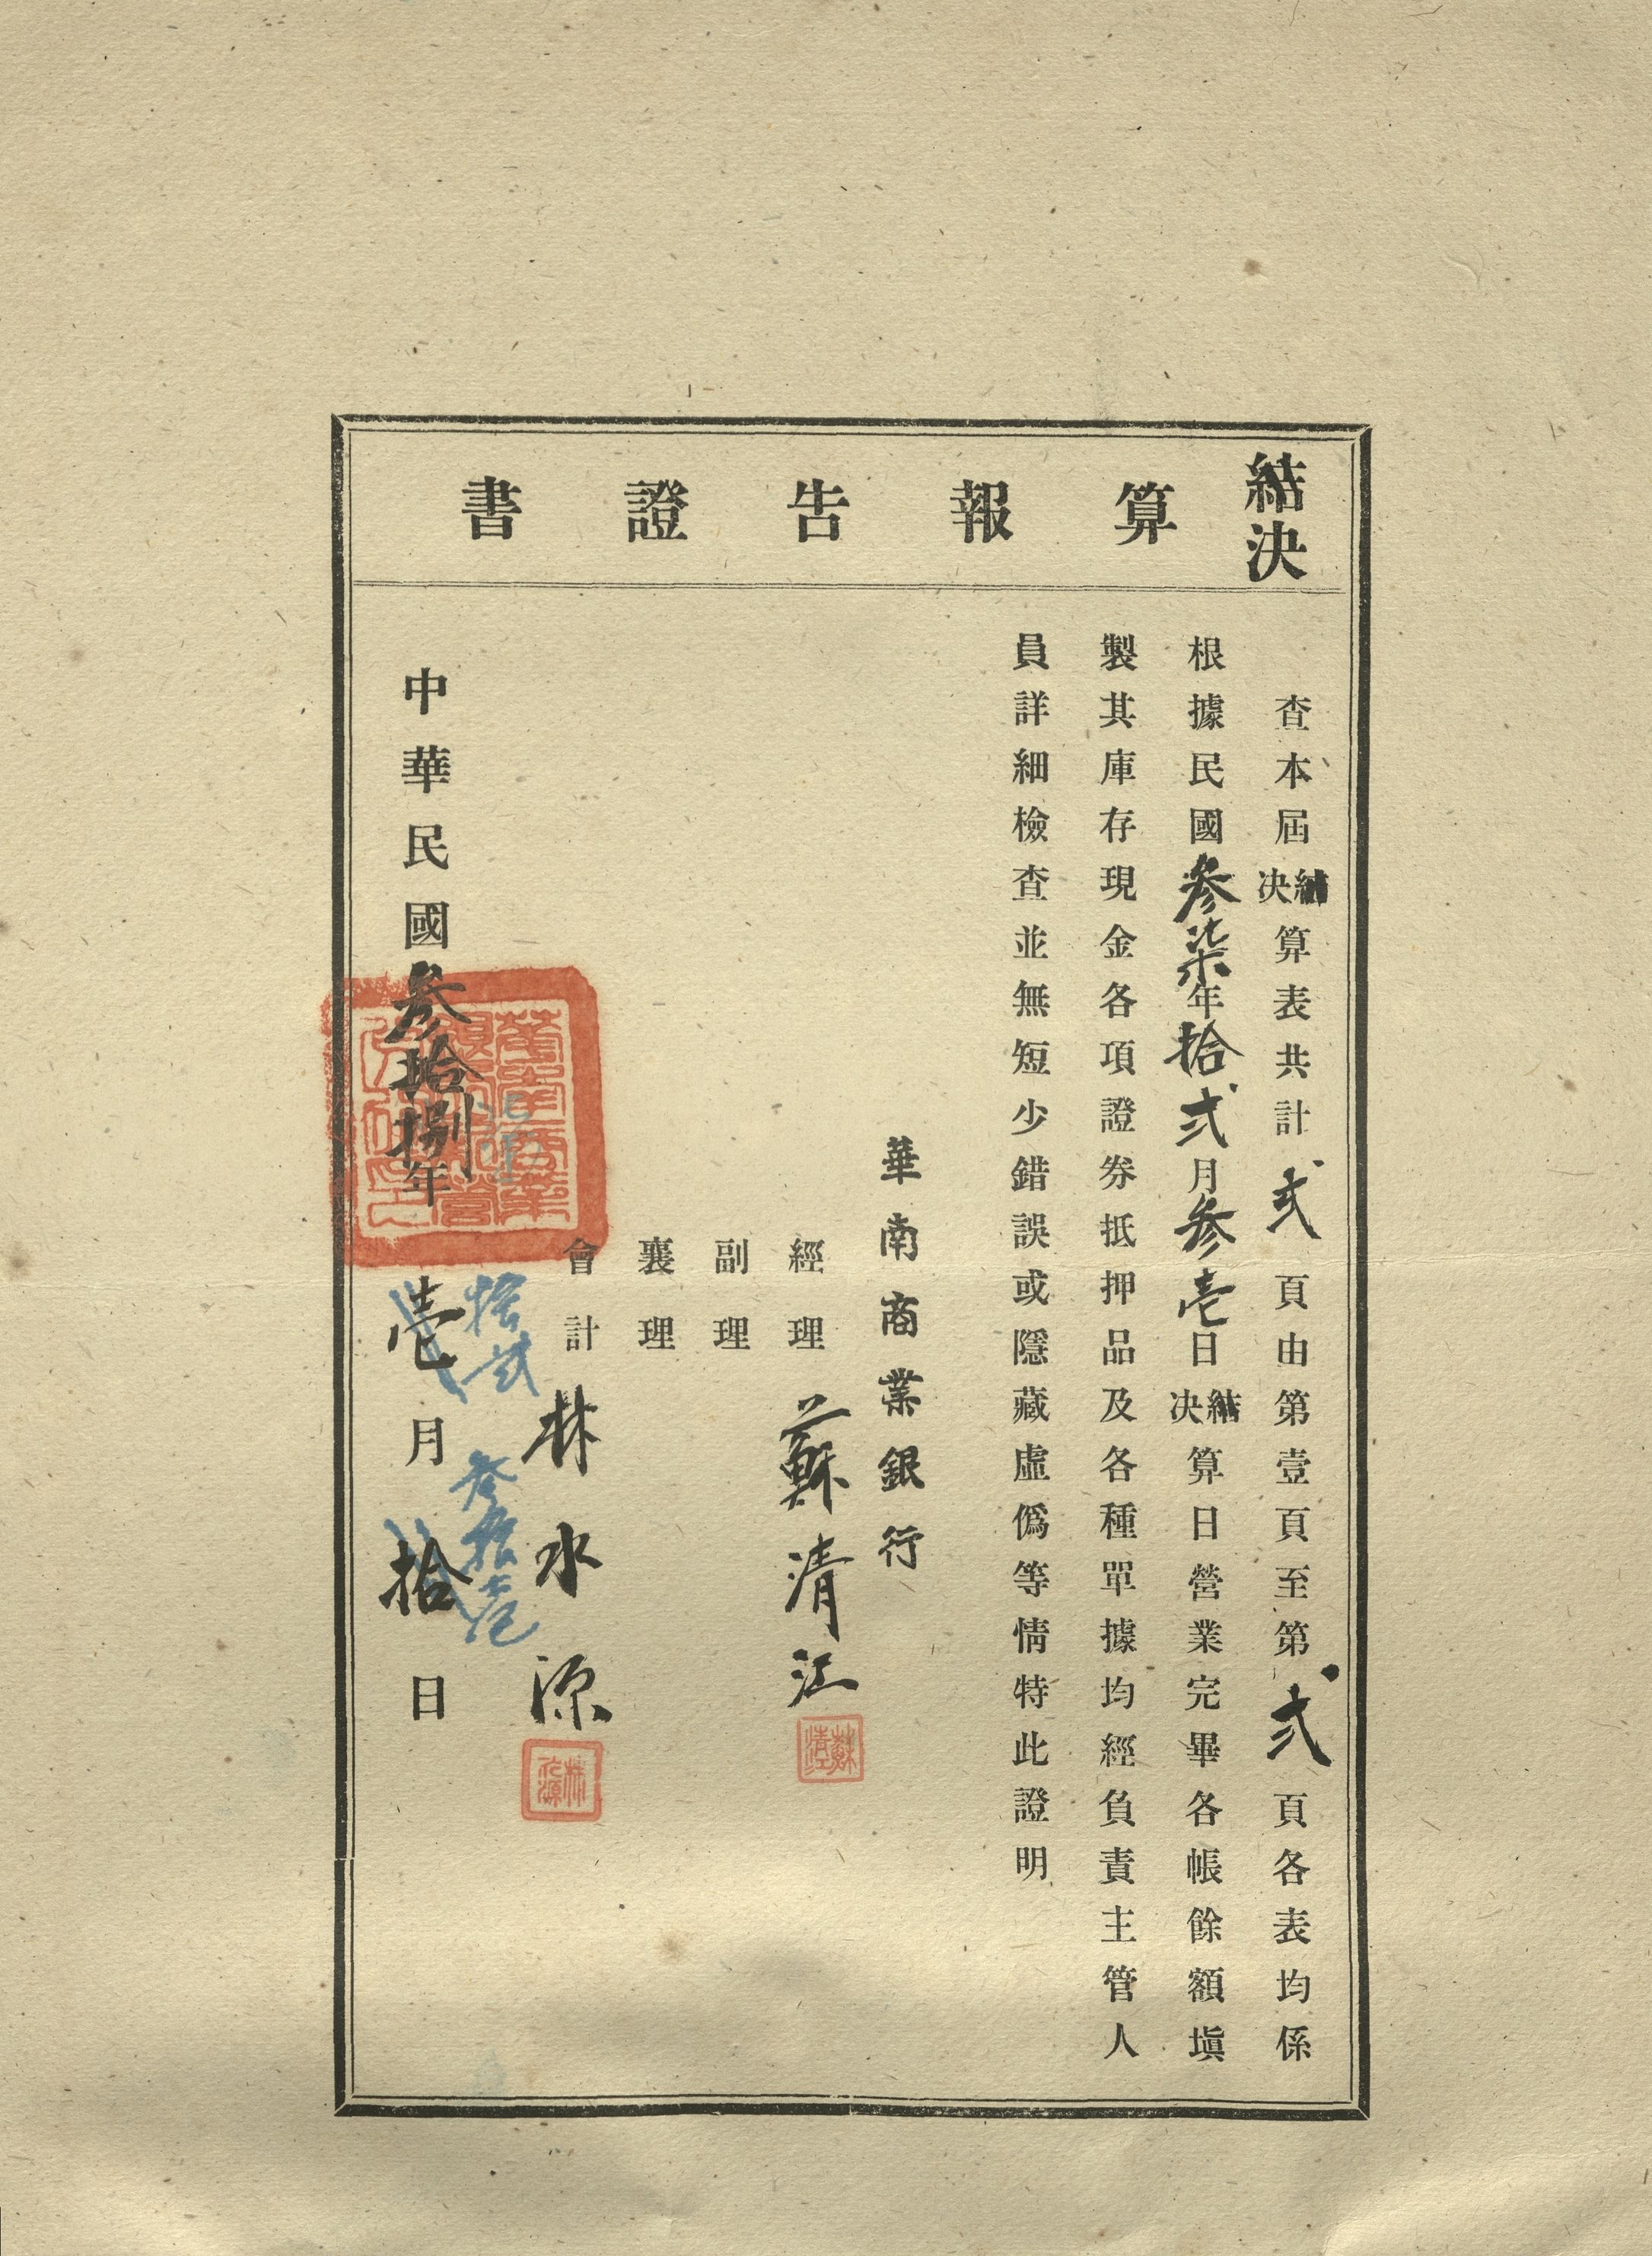 結決算報告證書
查本屆結決算表共計弍頁由第壹頁至第弍頁各表均係
根據民國叁柒年拾弍月叁壱日結決算日營業完畢各帳餘額塡
製其庫存現金各項證券抵押品及各種單據均經負責主管人
員詳細檢查並無短少錯誤或隱藏虛僞等情特此證明
華南商業銀行
經理 蘇清江
蘇清江
副理
襄理
會計 林水源
林水源
拾弍 叁拾壱
中華民國叁拾捌年壱月拾日